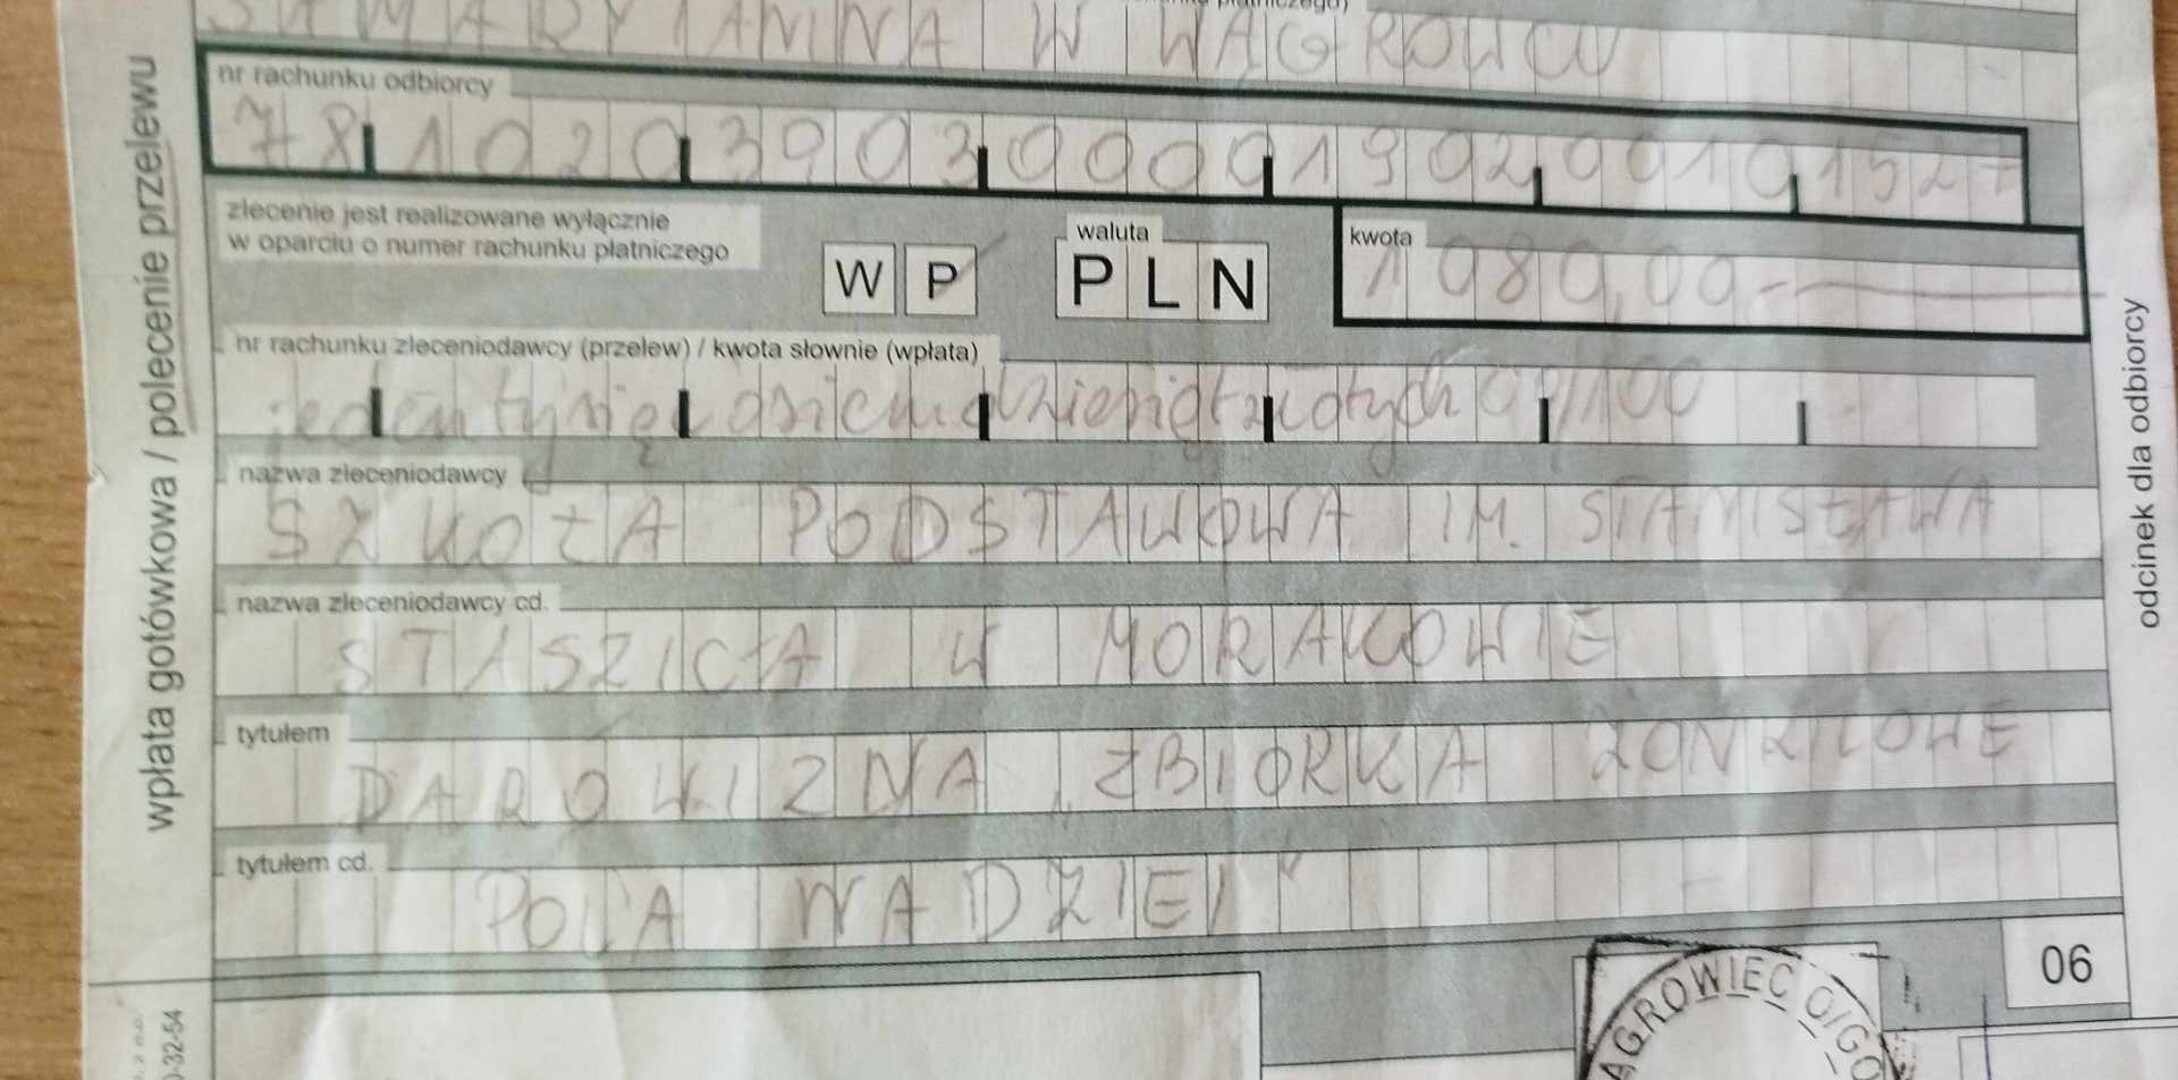 SAMARYTANINA W WĄGROWCU
nr rachunku odbiorcy
78 1020 3903 0000 1902 0010 1527
zlecenie jest realizowane wyłącznie
w oparciu o numer rachunku płatniczego
W P
waluta
PLN
kwota
1080,00-
nr rachunku zleceniodawcy (przelew) / kwota słownie (wpłata)
jeden tysiąc osiemdziesiąt złotych 00/100
nazwa zleceniodawcy
SZKOŁA PODSTAWOWA IM. STANISŁAWA
nazwa zleceniodawcy cd.
STASZICA W MORAKOWIE
tytułem
DAROWIZNA, ZBIÓRKA ŻONKILOWE
tytułem cd.
POLA NADZIEI
06
wpłata gotówkowa / polecenie przelewu
odcinek dla odbiorcy